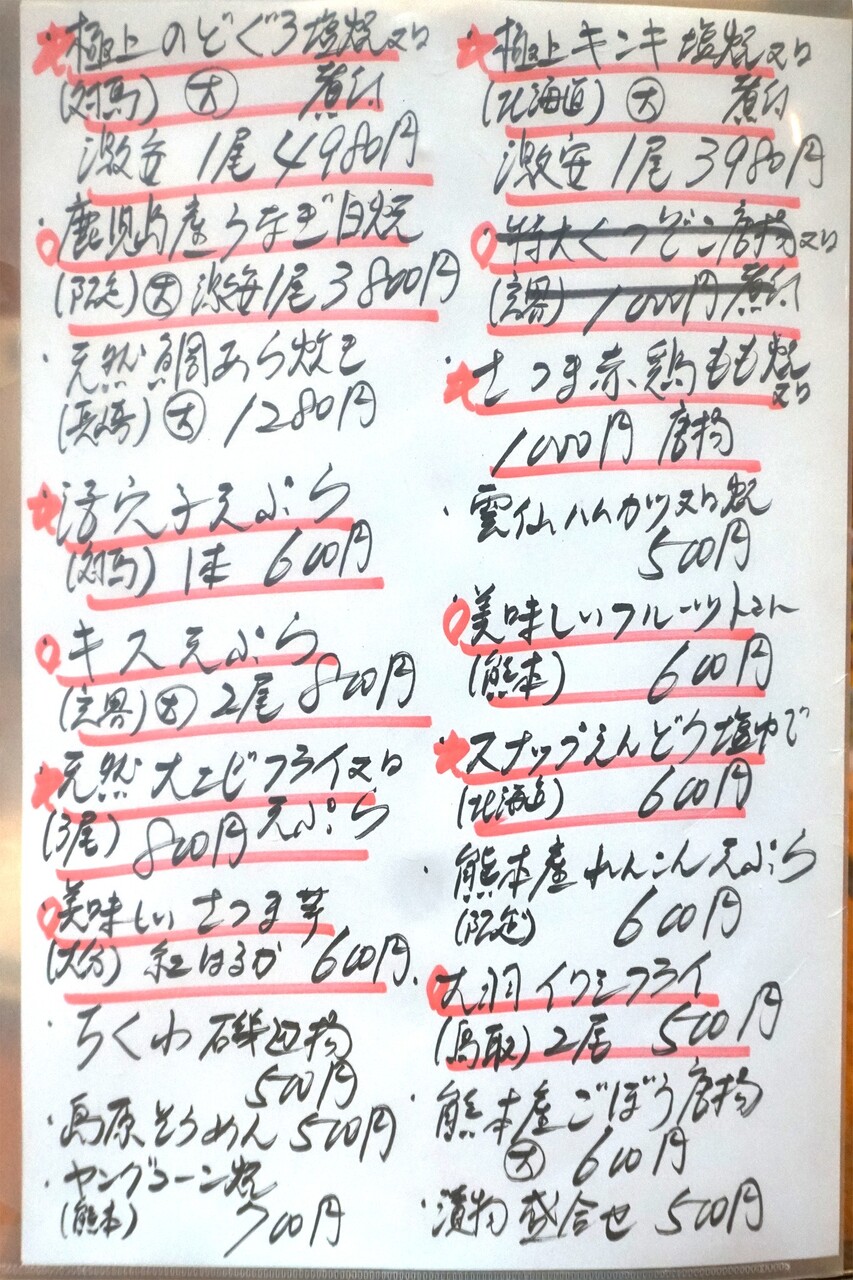 極上のどぐろ塩焼又は
(対馬) 大 煮付
激安 1尾 4980円
鹿児島産うなぎ白焼
(限定) 大 激安1尾 3800円
天然鯛あら炊き
(長崎) 大 1280円
活穴子天ぷら
(対馬) 1本 600円
キス天ぷら
(玄界) 大 2尾 800円
天然大エビフライ又は
(3尾) 800円 天ぷら
美味しいさつま芋
(大分) 紅はるか 600円
ちくわ磯辺揚
500円
島原そうめん 500円
ヤングコーン焼
(熊本) 700円
極上キンキ塩焼又は
(北海道) 大 煮付
激安 1尾 3980円
特大くつぞこ唐揚又は
(玄界) 1000円 煮付
さつま赤鶏もも焼
又は
1000円 唐揚
雲仙ハムカツ又は焼
500円
美味しいフルーツトマト
(熊本) 600円
スナップえんどう塩ゆで
(北海道) 600円
熊本産れんこん天ぷら
(限定) 600円
大羽イワシフライ
(鳥取) 2尾 500円
熊本産ごぼう唐揚
大 600円
漬物盛合せ 500円